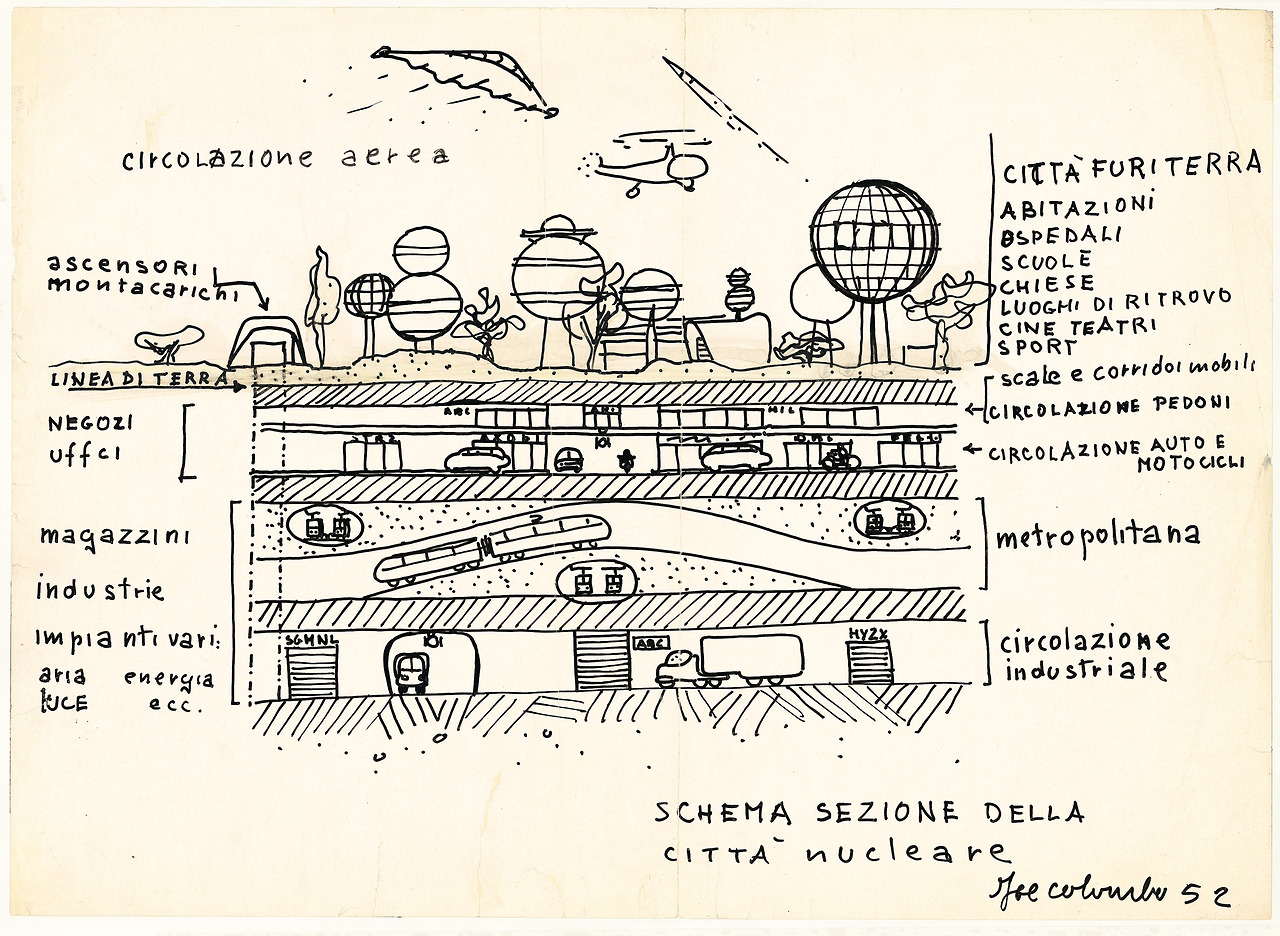 circolazione aerea
ascensori
montacarichi
LINEA DI TERRA
NEGOZI
uffci
magazzini
industrie
impianti vari:
aria energia
LUCE ecc.
CITTÀ FURITERRA
ABITAZIONI
OSPEDALI
SCUOLE
CHIESE
LUOGHI DI RITROVO
CINE TEATRI
SPORT
scale e corridoi mobili
CIRCOLAZIONE PEDONI
CIRCOLAZIONE AUTO E
MOTOCICLI
metropolitana
circolazione
industriale
SGMNL
ABC
HYZX
SCHEMA SEZIONE DELLA
CITTÀ nucleare
Joe colombo 52